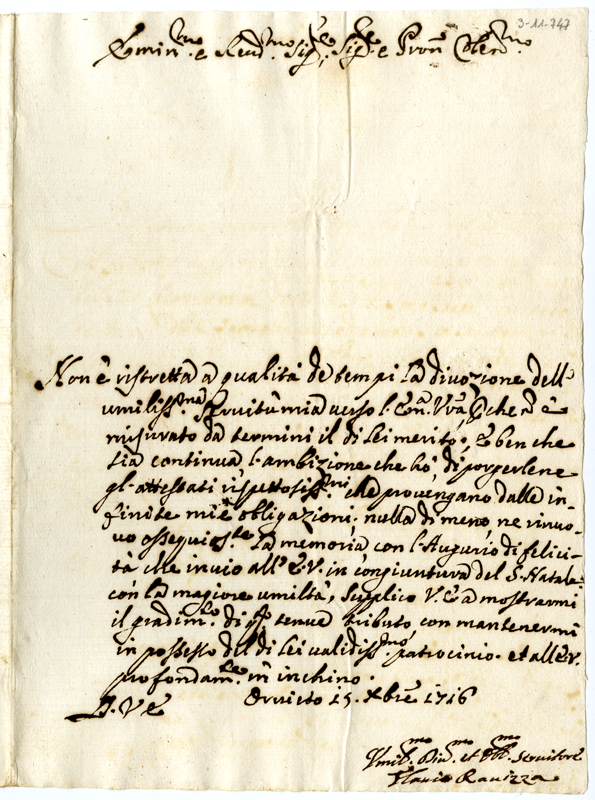 3-11-747
Emin.mo e Reud.mo Sig.re Sig.re e Pron Col.mo
Non è ristretta a qualità de tempi la divozione dell'
umiliss.ma servitù mia verso l'Em. Vra, perche è
misurato da termini il di lei merito; E ben che
sia continua l'ambizione che hò, di porgerlene
gl'attestati rispettosiss.mi, che provengano dalle in-
finite mie obligazioni. nulla di meno, ne rinuo-
uo ossequios.te la memoria con l'Augurio di felici-
tà che inuio all'E.V. in congiuntura del S. Natale.
con la magiore umiltà, supplico V.E. a mostrarmi
il gradim.to di q.to tenue tributo con mantenermi
in possesso del di Lei ualidiss.mo patrocinio. et all'E.V.
profondam.te m'inchino.
D. V E Orvieto 15. Xbre 1716
Umil.mo Diu.mo et Obl.mo Seruitore
Flauio Rauizza